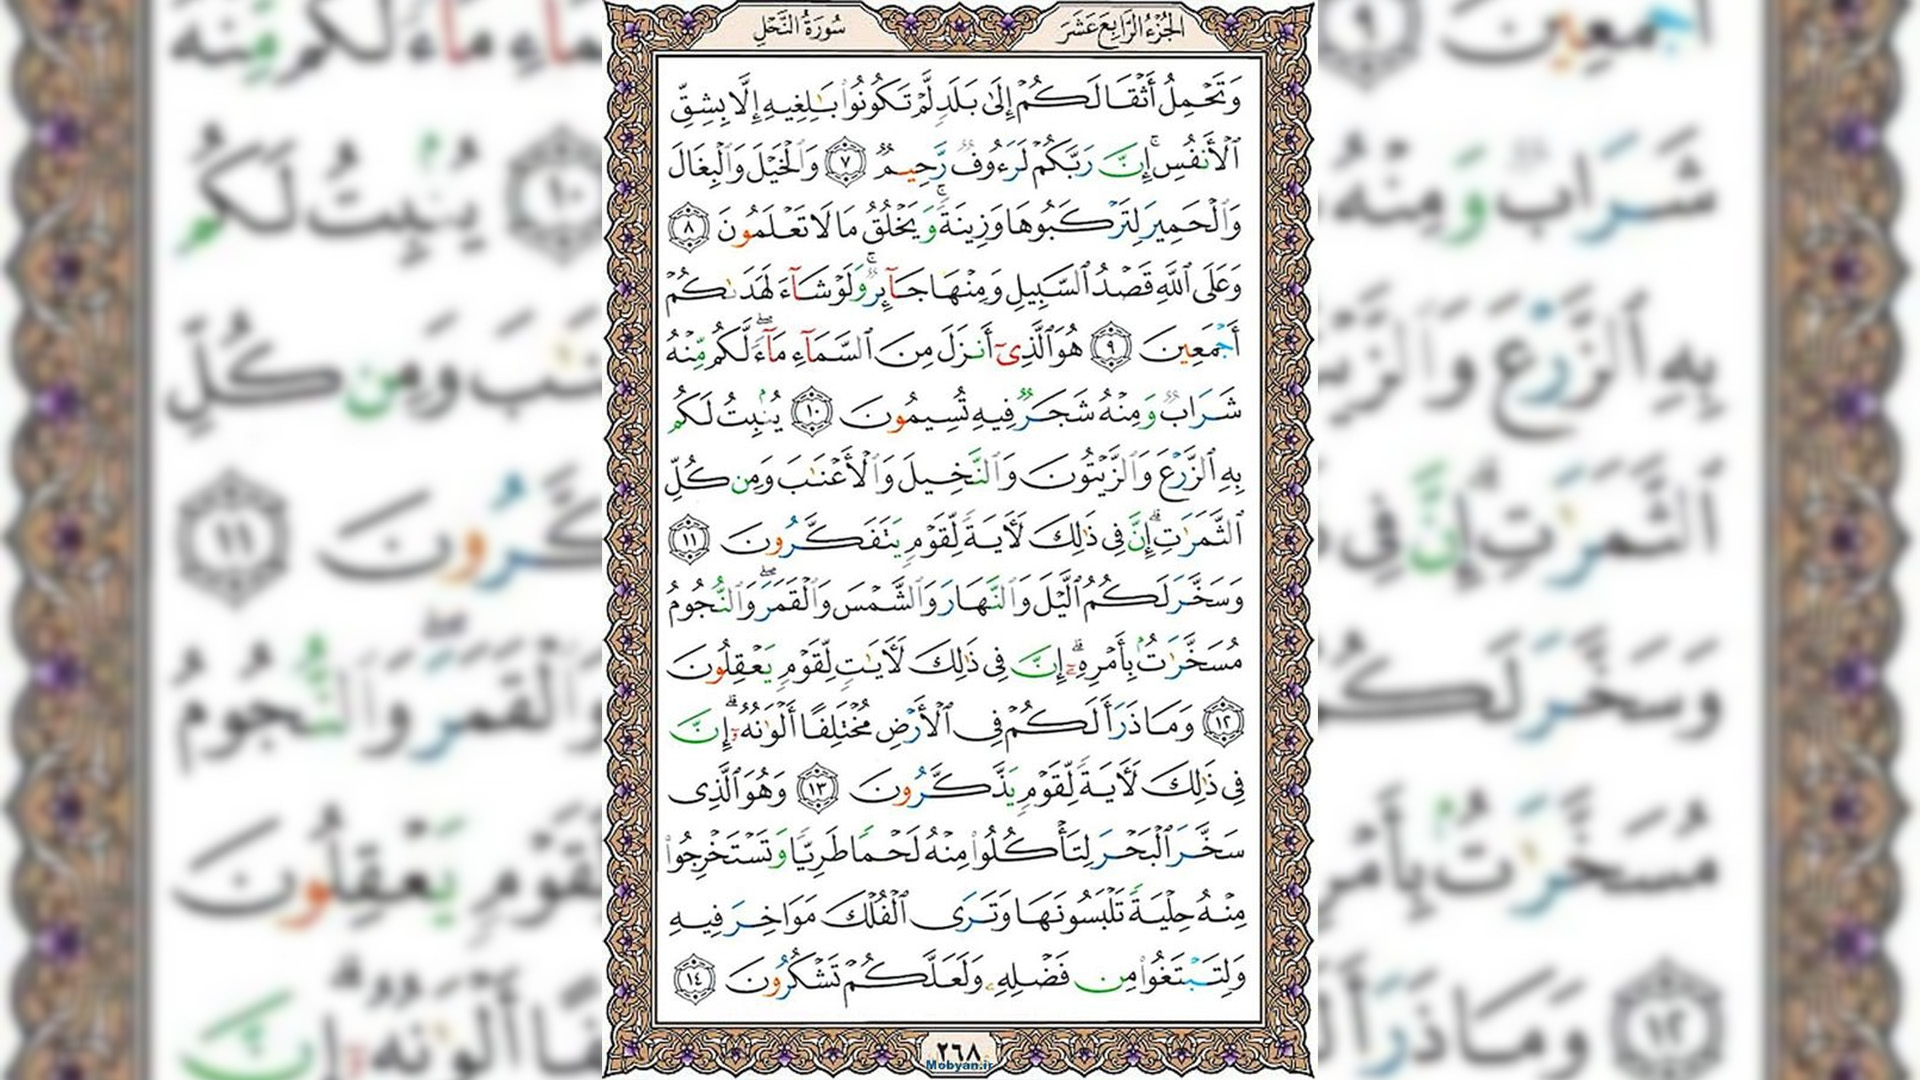 الجُزْءُ الرَّابِعَ عَشَرَ
سُورَةُ النَّحْلِ
وَتَحْمِلُ أَثْقَالَكُمْ إِلَىٰ بَلَدٍ لَّمْ تَكُونُوا۟ بَـٰلِغِيهِ إِلَّا بِشِقِّ
ٱلْأَنفُسِ ۚ إِنَّ رَبَّكُمْ لَرَءُوفٌ رَّحِيمٌ ٧ وَٱلْخَيْلَ وَٱلْبِغَالَ
وَٱلْحَمِيرَ لِتَرْكَبُوهَا وَزِينَةً ۚ وَيَخْلُقُ مَا لَا تَعْلَمُونَ ٨
وَعَلَى ٱللَّهِ قَصْدُ ٱلسَّبِيلِ وَمِنْهَا جَآئِرٌ ۚ وَلَوْ شَآءَ لَهَدَىٰكُمْ
أَجْمَعِينَ ٩ هُوَ ٱلَّذِىٓ أَنزَلَ مِنَ ٱلسَّمَآءِ مَآءً ۖ لَّكُم مِّنْهُ
شَرَابٌ وَمِنْهُ شَجَرٌ فِيهِ تُسِيمُونَ ١٠ يُنۢبِتُ لَكُم
بِهِ ٱلزَّرْعَ وَٱلزَّيْتُونَ وَٱلنَّخِيلَ وَٱلْأَعْنَـٰبَ وَمِن كُلِّ
ٱلثَّمَرَٰتِ ۗ إِنَّ فِى ذَٰلِكَ لَـَٔايَةً لِّقَوْمٍ يَتَفَكَّرُونَ ١١
وَسَخَّرَ لَكُمُ ٱلَّيْلَ وَٱلنَّهَارَ وَٱلشَّمْسَ وَٱلْقَمَرَ ۖ وَٱلنُّجُومُ
مُسَخَّرَٰتٌۢ بِأَمْرِهِۦٓ ۗ إِنَّ فِى ذَٰلِكَ لَـَٔايَـٰتٍ لِّقَوْمٍ يَعْقِلُونَ
١٢ وَمَا ذَرَأَ لَكُمْ فِى ٱلْأَرْضِ مُخْتَلِفًا أَلْوَٰنُهُۥٓ ۗ إِنَّ
فِى ذَٰلِكَ لَـَٔايَةً لِّقَوْمٍ يَذَّكَّرُونَ ١٣ وَهُوَ ٱلَّذِى
سَخَّرَ ٱلْبَحْرَ لِتَأْكُلُوا۟ مِنْهُ لَحْمًا طَرِيًّا وَتَسْتَخْرِجُوا۟
مِنْهُ حِلْيَةً تَلْبَسُونَهَا وَتَرَى ٱلْفُلْكَ مَوَاخِرَ فِيهِ
وَلِتَبْتَغُوا۟ مِن فَضْلِهِۦ وَلَعَلَّكُمْ تَشْكُرُونَ ١٤
٢٦٨
Mobyan.ir